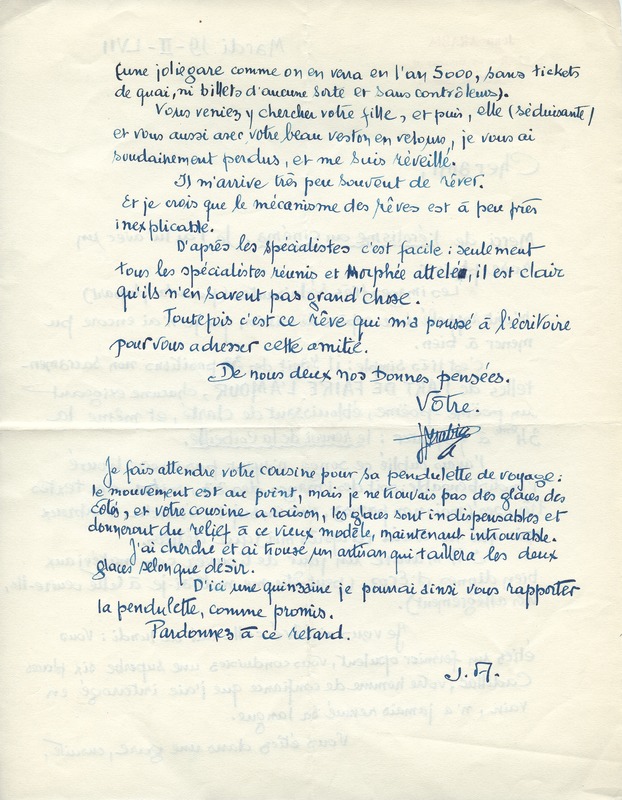 (une jolie gare comme on en verra en l'an 5000, sans tickets
de quai, ni billets d'aucune sorte et sans contrôleurs).
Vous veniez y chercher votre fille, et puis, elle (séduisante)
et vous aussi avec votre beau veston en velours, je vous ai
soudainement perdus, et me suis réveillé.
Il m'arrive très peu souvent de rêver.
Et je crois que le mécanisme des rêves est à peu près
inexplicable.
D'après les spécialistes c'est facile : seulement
tous les spécialistes réunis et Morphée attelés, il est clair
qu'ils n'en savent pas grand'chose.
Toutefois c'est ce rêve qui m'a poussé à l'écritoire
pour vous adresser cette amitié.
De nous deux nos bonnes pensées.
Vôtre :
Je fais attendre votre cousine pour sa pendulette de voyage :
le mouvement est au point, mais je ne trouvais pas des glaces des
côtés, et votre cousine a raison, les glaces sont indispensables et
donneront du relief à ce vieux modèle, maintenant introuvable.
J'ai cherché et ai trouvé un artisan qui taillera les deux
glaces selon que désir.
D'ici une quinzaine je pourrai ainsi vous rapporter
la pendulette, comme promis.
Pardonnez à ce retard.
J. A.